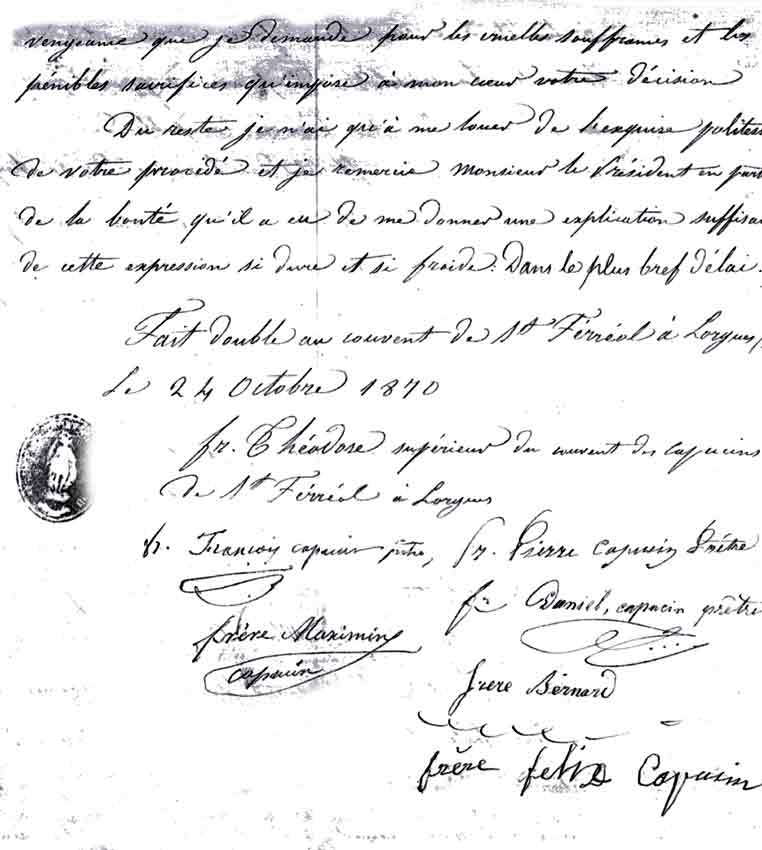 vengeance que je demande pour les cruelles souffrances et les
pénibles sacrifices qu'impose à mon cœur votre décision
Du reste je n'ai qu'à me louer de l'exquise politess
de votre procédé et je remercie Monsieur le Président en part
de la bonté qu'il a eu de me donner une explication suffisan
de cette expression si dure et si froide: Dans le plus bref délai.
Fait double au couvent de St Férréol à Lorgues
Le 24 Octobre 1870
fr. Théodose supérieur du couvent des capucins
de St Férréol à Lorgues
fr. François capucin prêtre, fr. Pierre Capucin Prêtre
fr Daniel, capucin prêtre
frère Maximin
capucin
frere Bérnard
frère felix Capucin